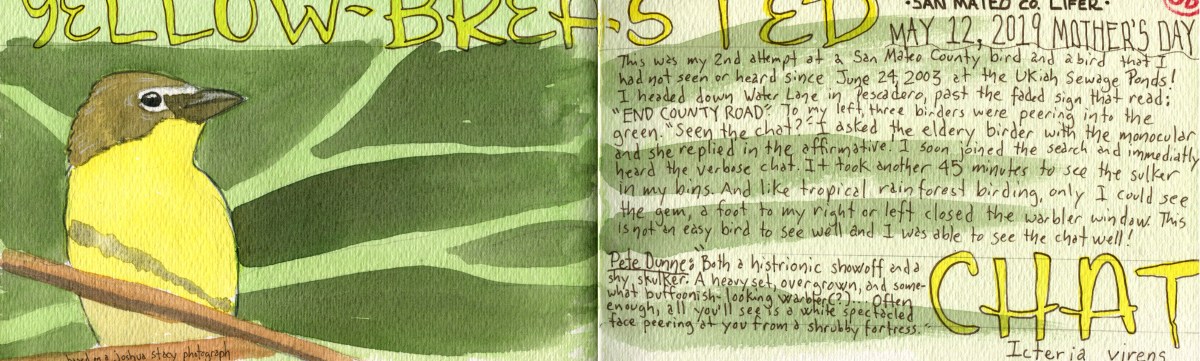 YELLOW-BREASTED
·SAN MATEO CO. LIFER·
MAY 12, 2019 MOTHER'S DAY
This was my 2nd attempt at a San Mateo County bird and a bird that I
had not seen or heard since June 24, 2003 at the Ukiah Sewage Ponds!
I headed down Water Lane in Pescadero, past the faded sign that read:
"END COUNTY ROAD". To my left, three birders were peering into the
green. "Seen the chat?" I asked the eldery birder with the monocular
and she replied in the affirmative. I soon joined the search and immediatly
heard the verbose chat. It took another 45 minutes to see the sulker
in my bins. And like tropical rainforest birding, only I could see
the gem, a foot to my right or left closed the warbler window. This
is not an easy bird to see well and I was able to see the chat well!
Pete Dunne: "Both a histrionic showoff and a
shy skulker. A heavyset, overgrown, and some-
what buffoonish-looking warbler(?)... Often
enough, all you'll see is a white spectacled
face peering at you from a shrubby fortress."
CHAT
Icteria virens
based on a Joshua Stacy photograph